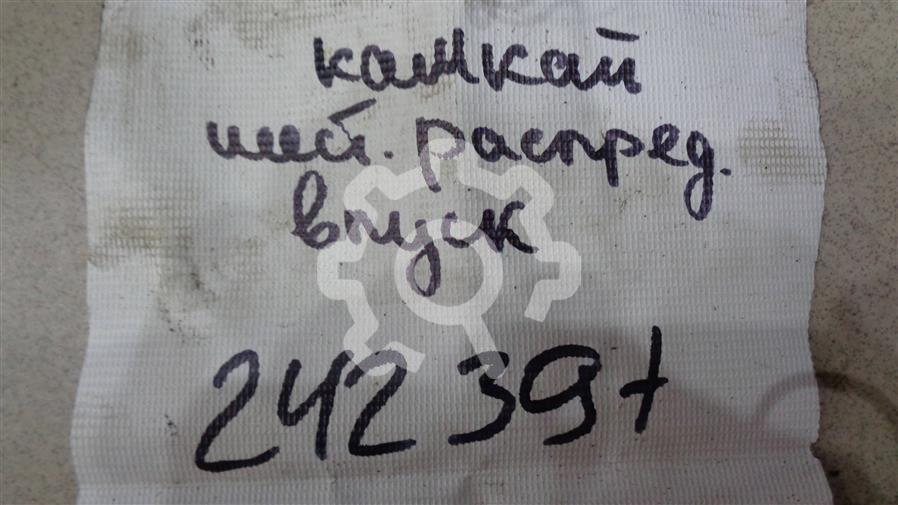 кашкай
шест. распред.
впуск
24239т